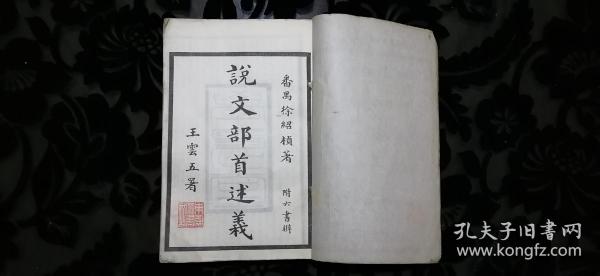 番禺徐紹楨著　附六書辨
說文部首述義
王雲五署
孔夫子旧書网
www.kongfz.com